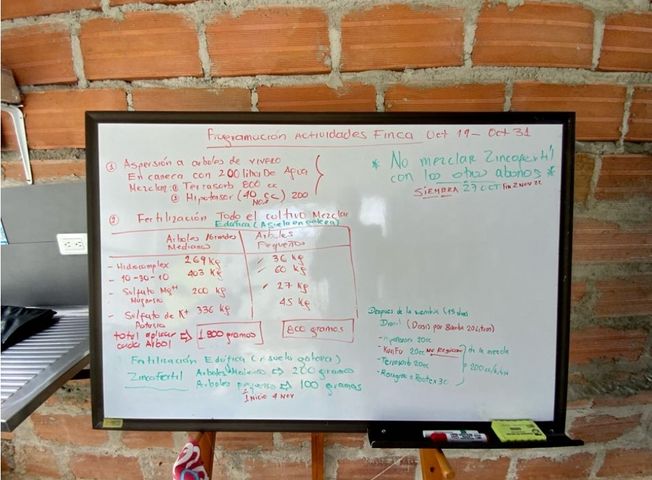 Programación Actividades Finca Oct 19 - Oct 31
① Aspersión a arboles de vivero
En caneca con 200 litros De Agua
Mezclar: ① Terrasorb 800 cc
200
* No mezclar Zincofertil
con los otros abonos *
SIEMBRA 27 OCT Fin 2 Nov 22
② Fertilización Todo el cultivo Mezclar
Edáfica (Al suelo en gotera)
Arboles /Grandes
Medianos
Arboles
Pequeños
- Hidrocomplex 269 kg 36 kg
- 10-30-10 403 kg 60 kg
- Sulfato Mg++ 200 kg 27 kg
- Sulfato de K+ 336 kg 45 kg
Potasio
total aplicar
cada Arbol ⇨ 1800 gramos 800 gramos
Fertilización Edáfica
Zincofertil Arboles Medianos ⇨ 200 gramos
Arboles pequeños ⇨ 100 gramos
Inicio 4 Nov
Después de la siembra (15 días)
(Dosis por Bomba 20 Litros)
20cc
- KunFu 20cc de la mezcla
- Terrasorb 20cc